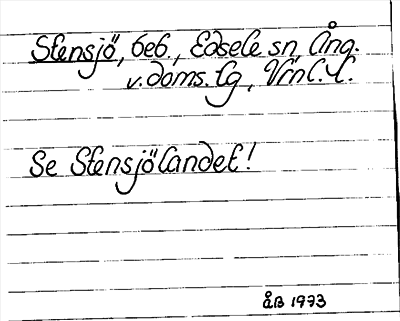 Stensjö, beb., Edsele sn, Ång.
v. doms. lg, Vrnl. l.
Se Stensjölandet!
ÅB 1973